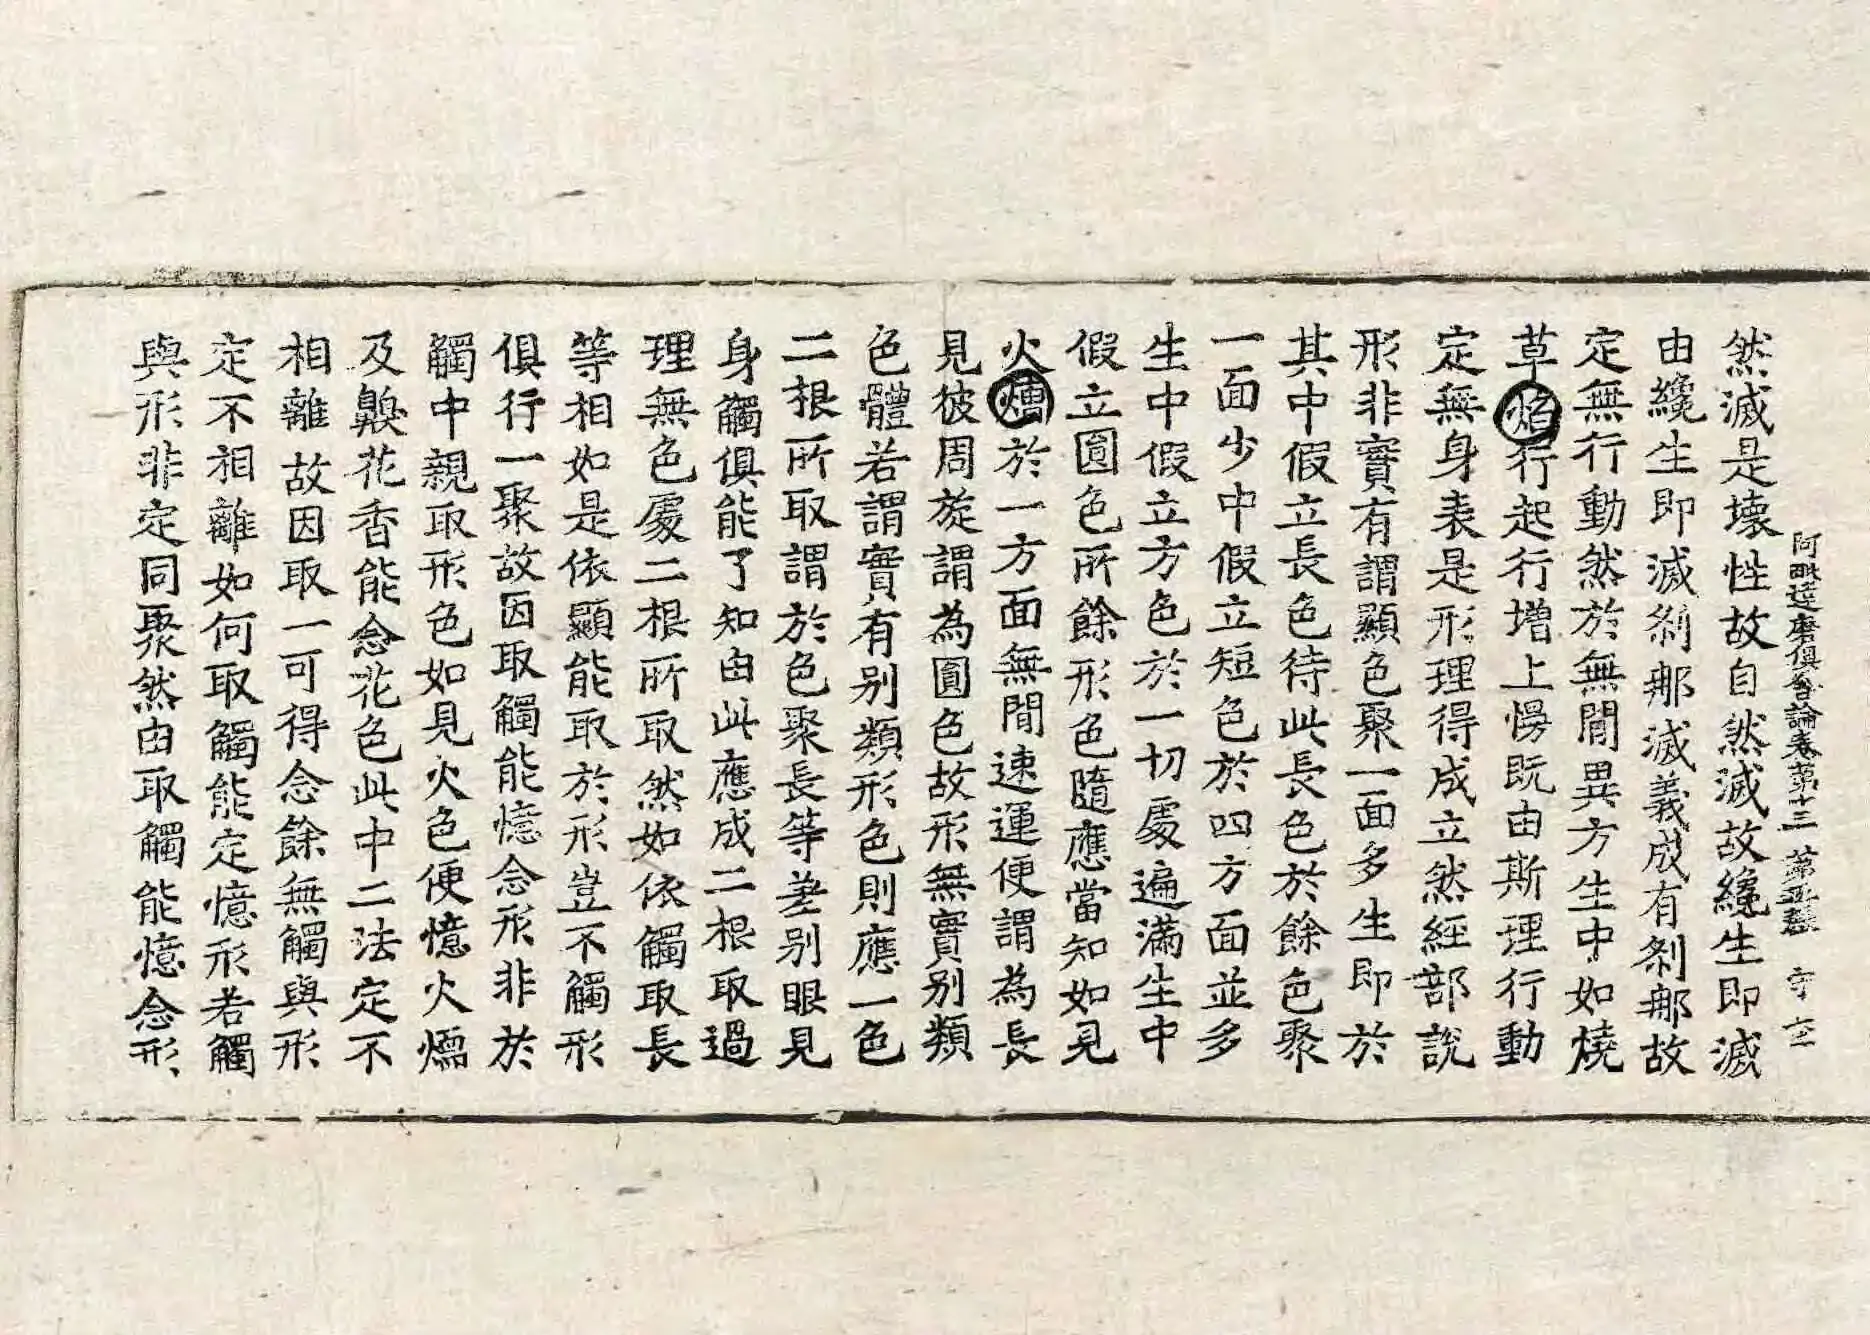 然滅是壞性故自然滅故纔生即滅
阿毗達磨俱舍論卷第十三 第張 守
由纔生即滅剎那滅義成有剎那故
定無行動然於無間異方生中如燒
草焰行起行增上慢既由斯理行動
定無身表是形理得成立然經部說
形非實有謂顯色聚一面多生即於
其中假立長色待此長色於餘色聚
一面少中假立短色於四方面並多
生中假立方色於一切處遍滿生中
假立圓色所餘形色隨應當知如見
火㷮於一方面無間速運便謂為長
見彼周旋謂為圓色故形無實別類
色體若謂實有別類形色則應一色
二根所取謂於色聚長等差別眼見
身觸俱能了知由此應成二根取過
理無色處二根所取然如依觸取長
等相如是依顯能取於形豈不觸形
俱行一聚故因取觸能憶念形非於
觸中親取形色如見火色便憶火煗
及齅花香能念花色此中二法定不
相離故因取一可得念餘無觸與形
定不相離如何取觸能定憶形若觸
與形非定同聚然由取觸能憶念形